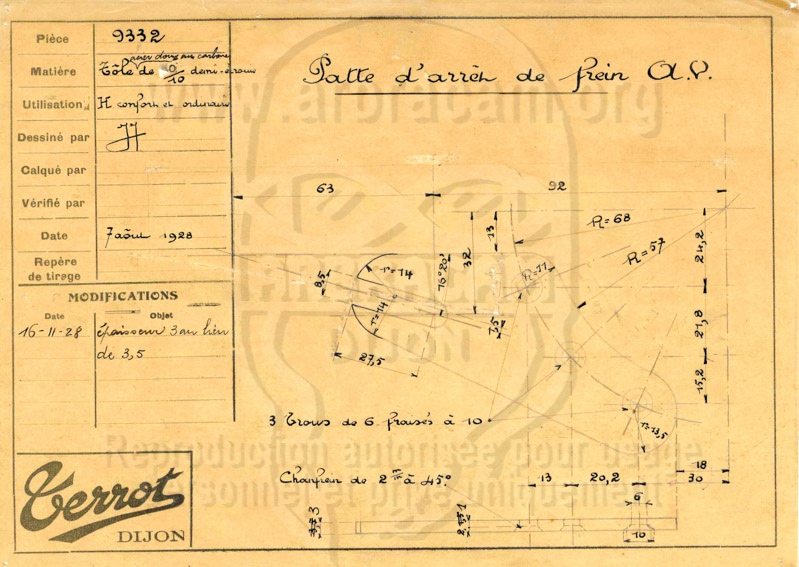 Pièce 9332
acier doux au carbone
Matière Tôle de /10 demi-écrouie
Utilisation H confort et ordinaire
Dessiné par
Calqué par
Vérifié par
Date 7 août 1928
Repère
de tirage
MODIFICATIONS
Date Objet
16-11-28 épaisseur 3 au lieu
de 3,5
Terrot
DIJON
Patte d'arrêt de frein AV.
www.arbracam.org
63
92
13
32
R=68
R=57
24,2
R=11
r=14
16°20'
8,5
r=14
7,5
21,8
27,5
15,2
3 trous de 6 fraisés à 10
r=13,5
DIJON
Reproduction autorisée pour usage
personnel et privé uniquement
Chanfrein de 2 à 45°
13
20,2
18
30
6
3
1
10